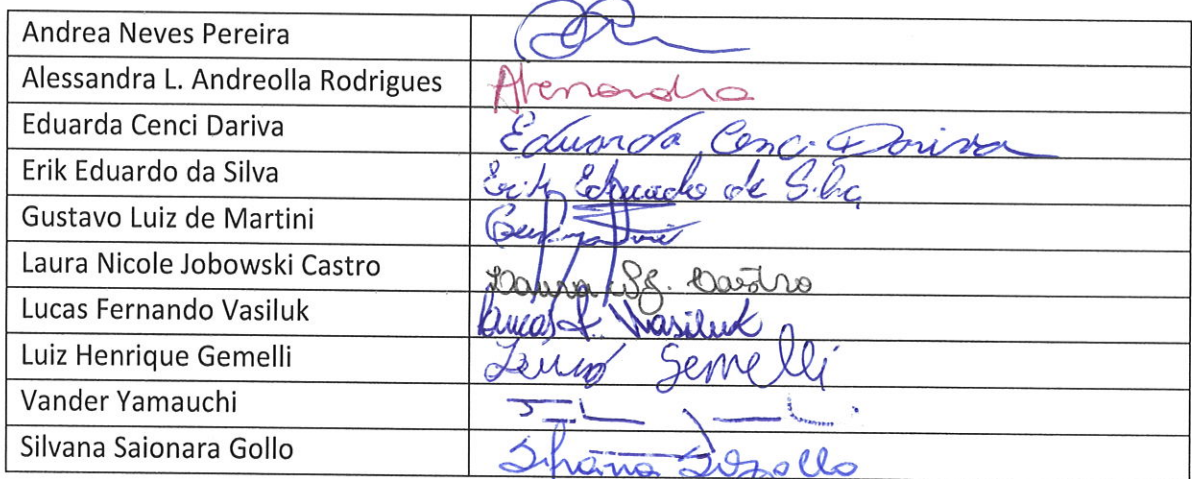 Andrea Neves Pereira
Alessandra L. Andreolla Rodrigues Alessandra
Eduarda Cenci Dariva Eduarda Cenci Dariva
Erik Eduardo da Silva Erik Eduardo da Silva
Gustavo Luiz de Martini
Laura Nicole Jobowski Castro Laura Castro
Lucas Fernando Vasiluk Lucas F. Vasiluk
Luiz Henrique Gemelli Gemelli
Vander Yamauchi
Silvana Saionara Gollo Silvana